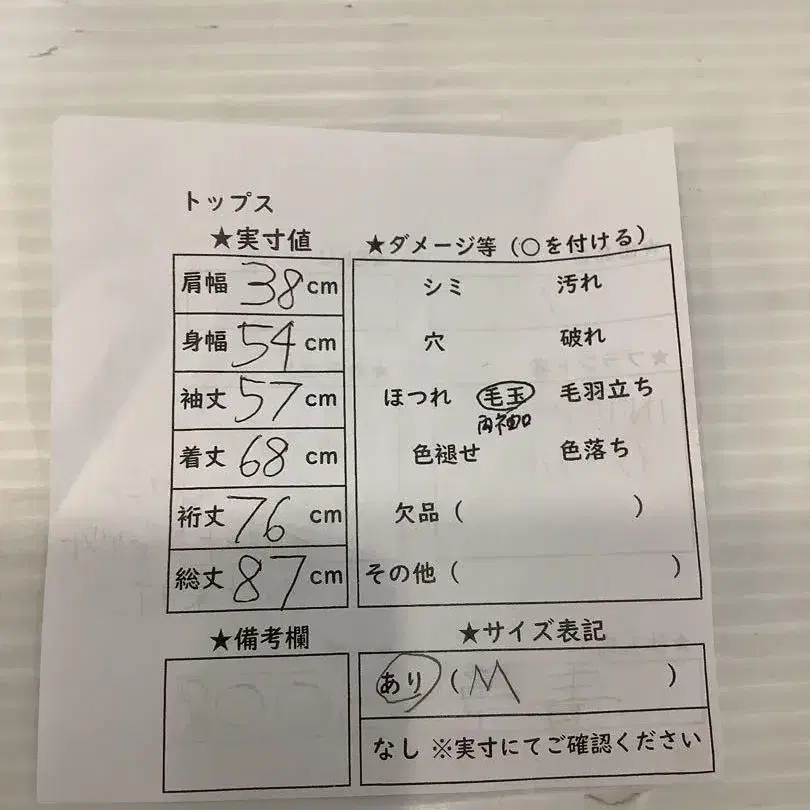 トップス
★実寸値
肩幅 38 cm
身幅 54 cm
袖丈 57 cm
着丈 68 cm
裄丈 76 cm
総丈 87 cm
★ダメージ等（○を付ける）
シミ 汚れ
穴 破れ
ほつれ 毛玉 毛羽立ち
両袖口
色褪せ 色落ち
欠品（ ）
その他（ ）
★備考欄
★サイズ表記
あり（M ）
なし ※実寸にてご確認ください